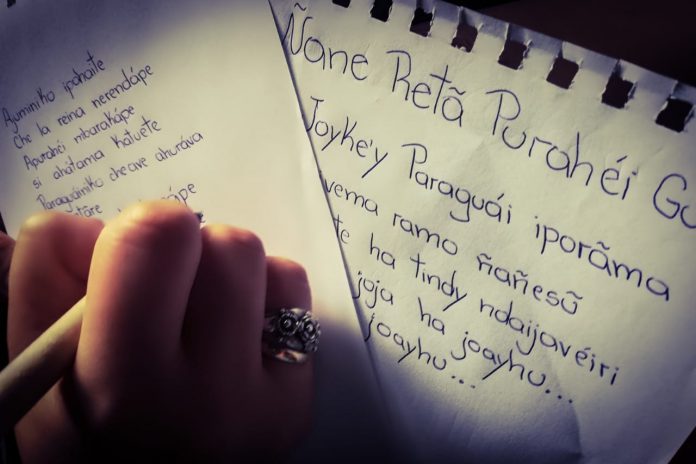 Ajuminiko ipahaite
Che la reina nerendápe
Apurahéi mbarakápe
si ahátama katuete
Paraguáiniko che ave ahuráva
Ñane Retã Purahéi Gu
Joyke'y Paraguái iporãma
ivema ramo ñañesũ
te ha tindy ndaijavéiri
joja ha joayhu...
joayhu...